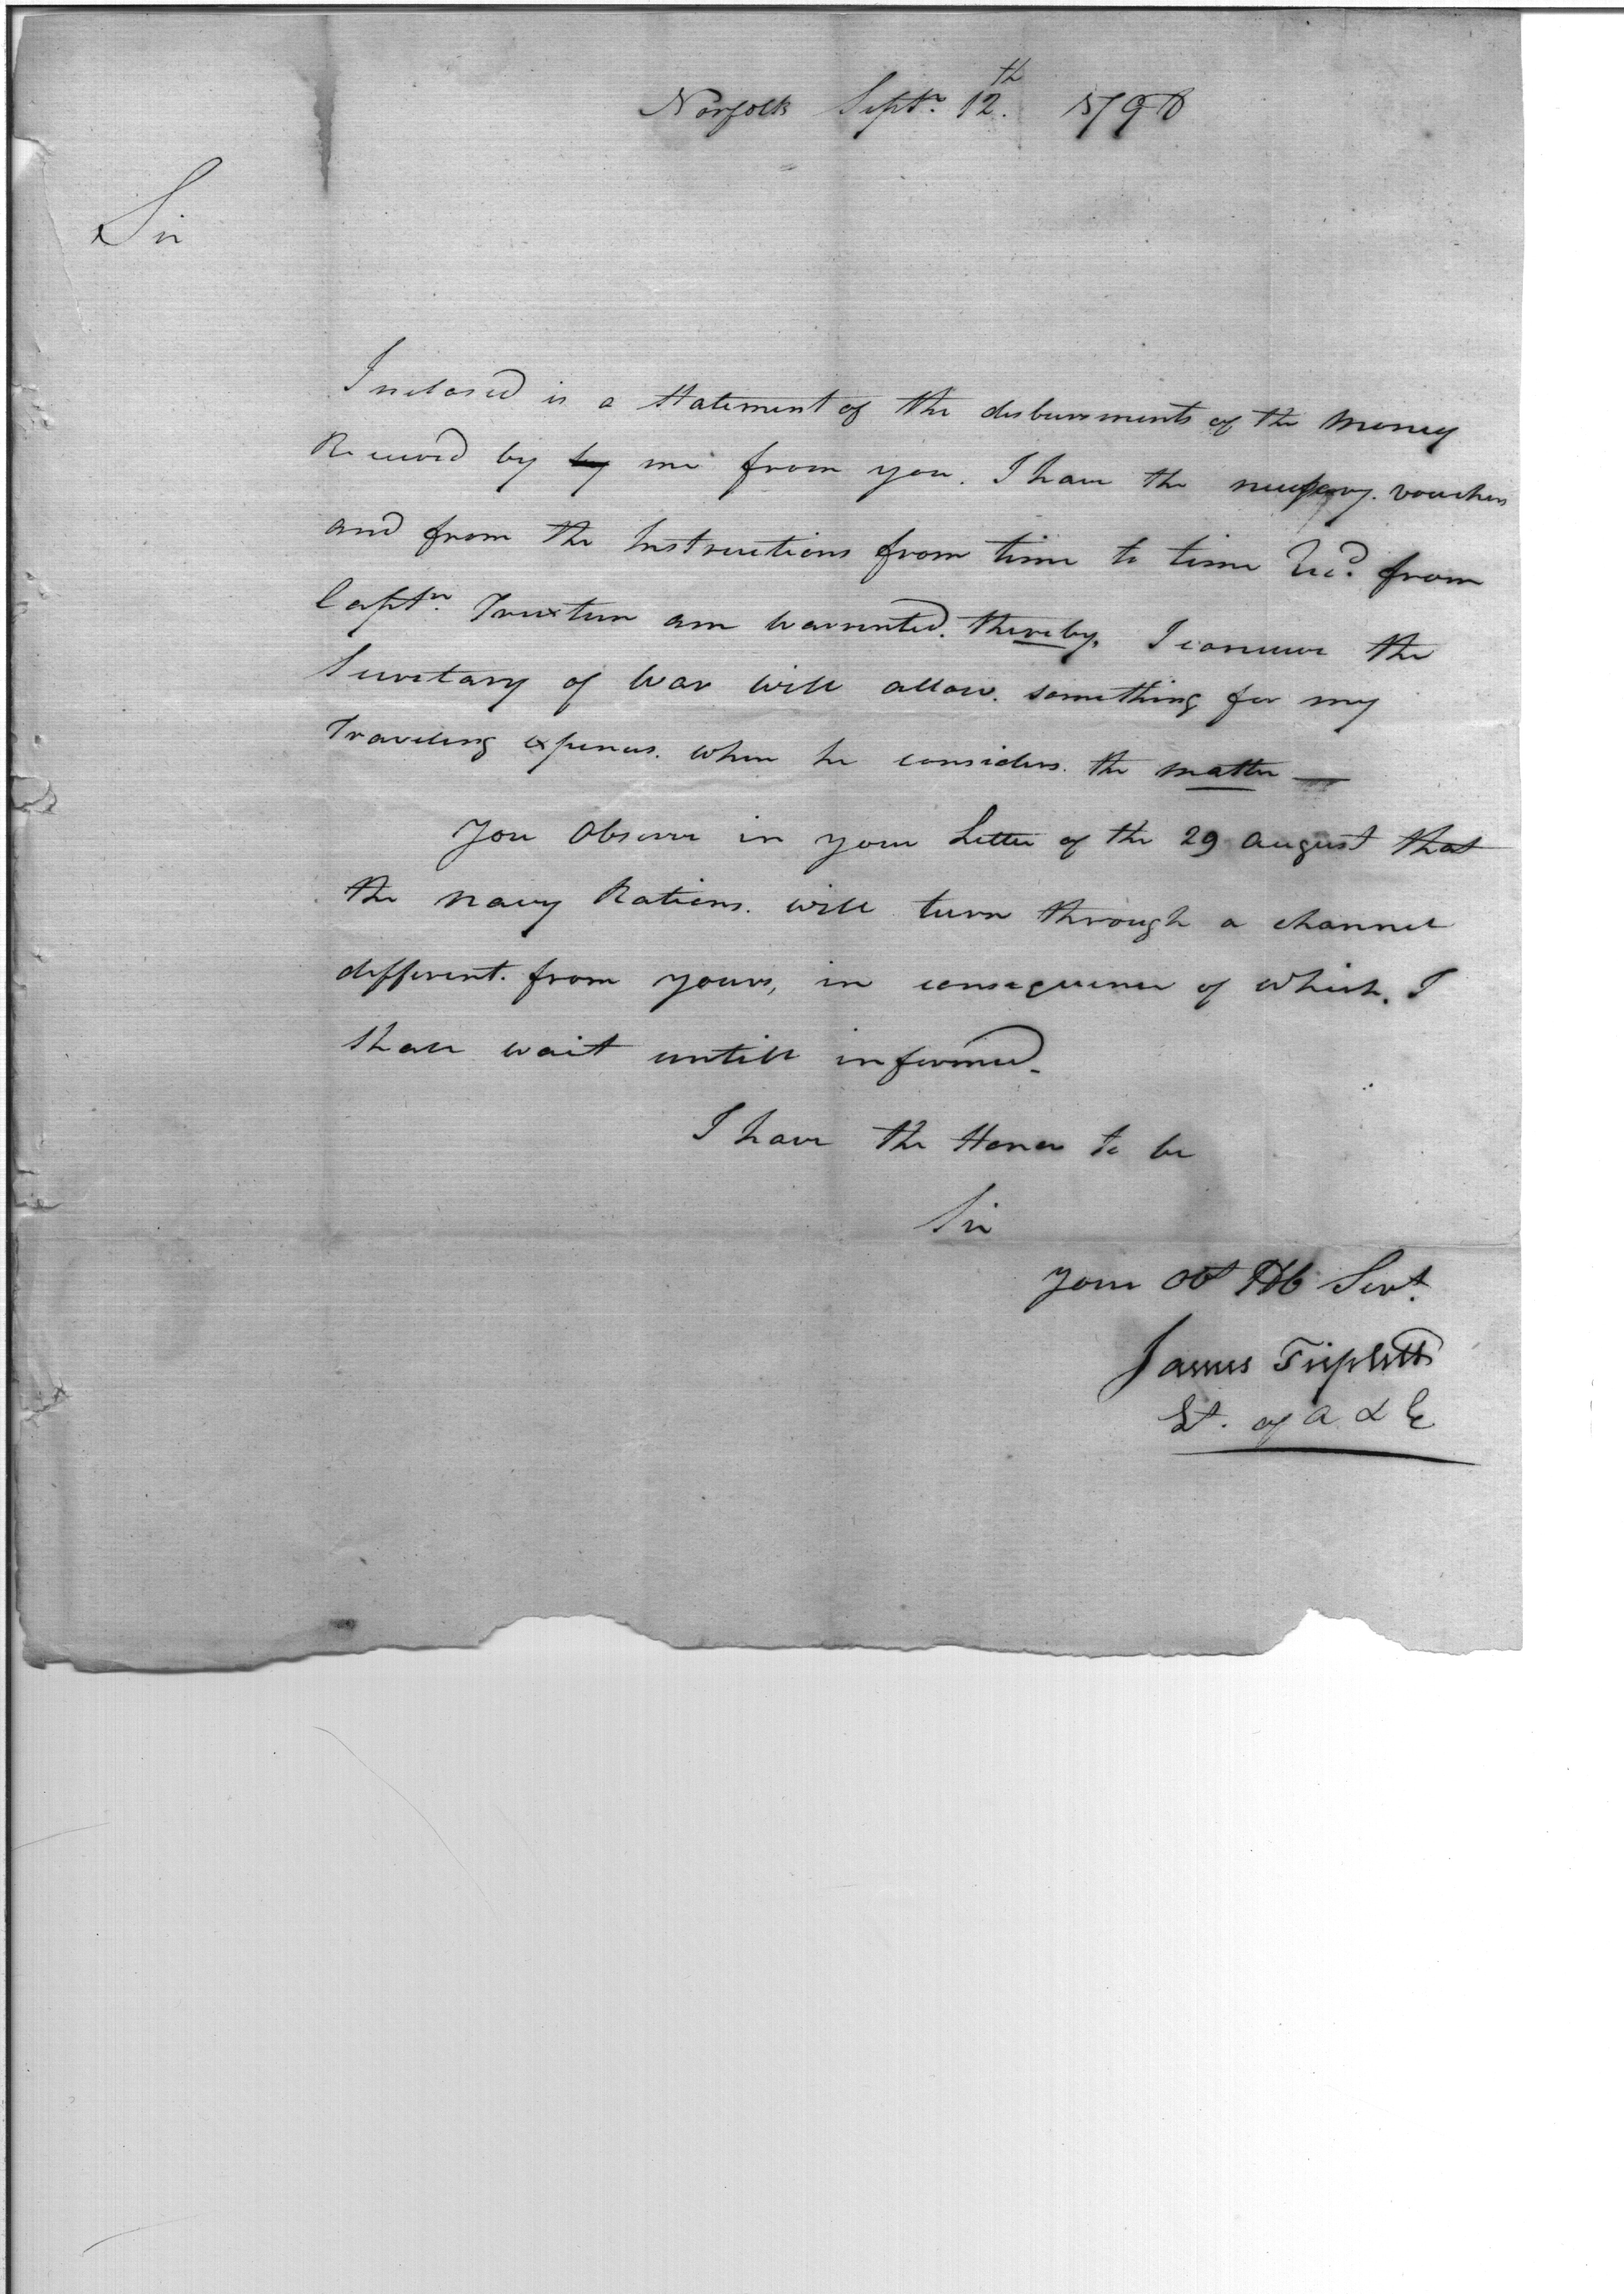 Norfolk Septr. 12th. 1798
Sir
Inclosed is a statement of the disbursments of the money
Received by by me from you. I have the necessary. vouchers
and from the Instructions from time to time Recd. from
Captn. Truxtun am warrented. thereby. I conceive the
Secretary of War will allow. something for my
Traveling expences. when he considers. the matter —
You Observe in your Letter of the 29 august that
the navy Rations. will turn through a channel
different. from yours, in consequence of which. I
shall wait untill informed.
I have the Honor to be
Sir
your Obt Hb Servt.
James Triplett
Lt. of A & E